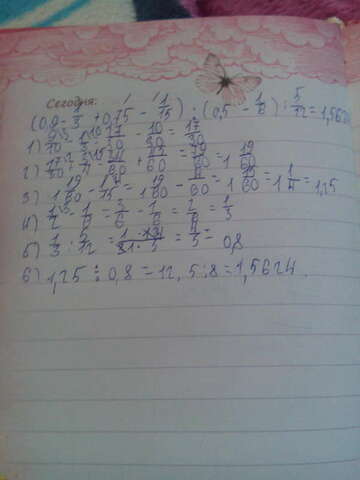 Сегодня:
(0,9 - 1/3 + 0,75 - 1/15) : (0,5 - 1/6) : 5/12 = 1,5624
1) 9/10 - 1/3 = 27/30 - 10/30 = 17/30
2) 17/30 + 3/4 = 34/60 + 45/60 = 79/60 = 1 19/60
3) 1 19/60 - 1/15 = 1 19/60 - 4/60 = 1 15/60 = 1 1/4 = 1,25
4) 1/2 - 1/6 = 3/6 - 1/6 = 2/6 = 1/3
5) 1/3 : 5/12 = 1 · 12/3 · 5 = 4/5 = 0,8
6) 1,25 : 0,8 = 12,5 : 8 = 1,5624.